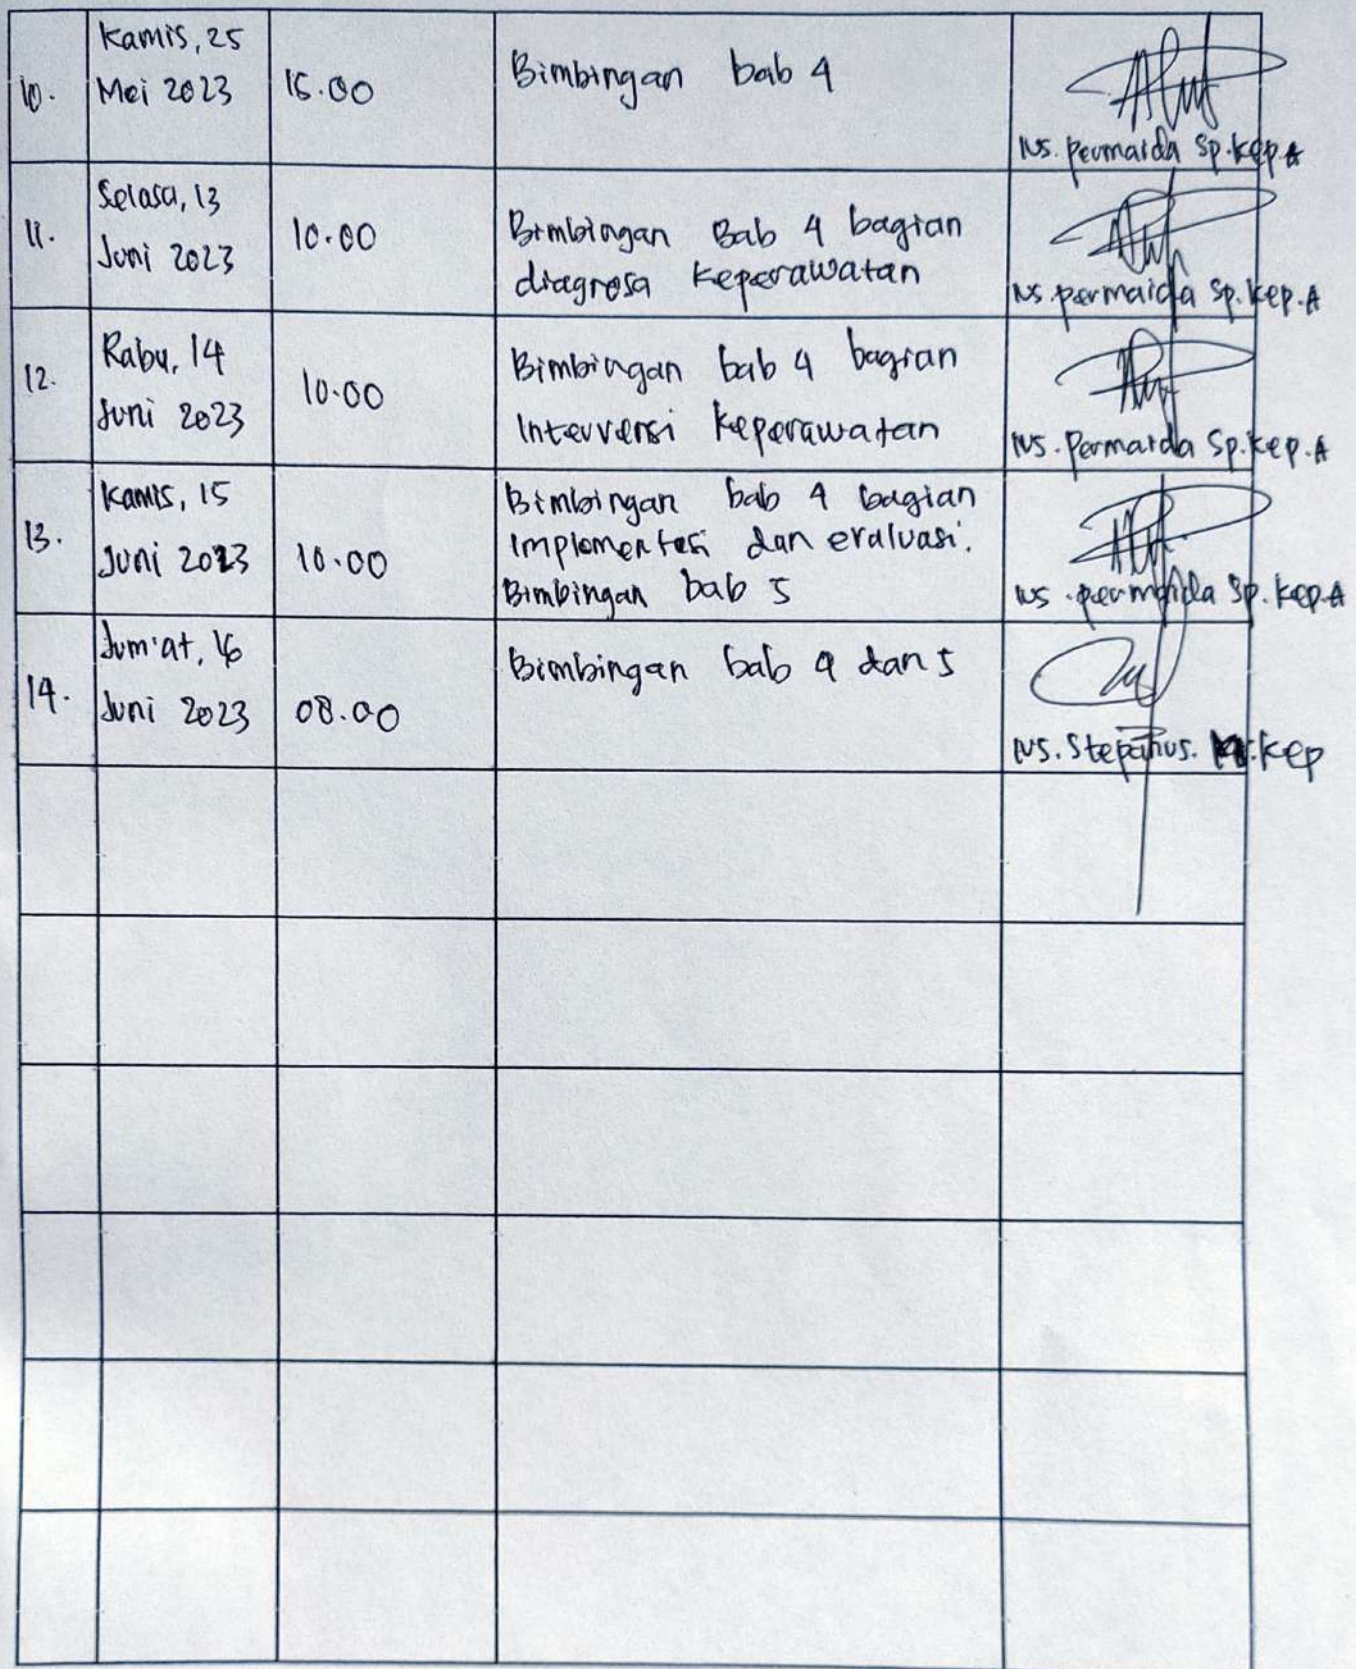 10.
Kamis, 25
Mei 2023
15.00
Bimbingan bab 4
Ns. Permaida Sp.Kep.A
11.
Selasa, 13
Juni 2023
10.00
Bimbingan Bab 4 bagian
diagnosa Keperawatan
Ns. permaida Sp.Kep.A
12.
Rabu, 14
Juni 2023
10.00
Bimbingan bab 4 bagian
Intervensi Keperawatan
Ns. Permaida Sp.Kep.A
13.
Kamis, 15
Juni 2023
10.00
Bimbingan bab 4 bagian
Implementasi dan evaluasi.
Bimbingan bab 5
Ns. permaida Sp. Kep.A
14.
Jum'at, 16
Juni 2023
08.00
Bimbingan bab 4 dan 5
Ns. Stepanus. Kep